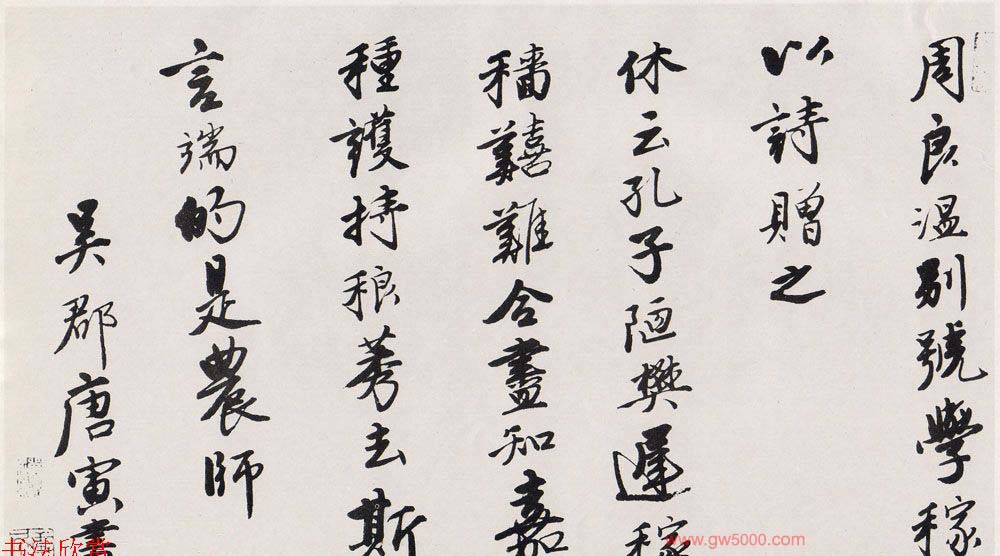 周良溫別號學稼
以詩贈之
休云孔子陋樊遲稼
穡囏難合盡知嘉
種護持稂莠去斯
言端的是農師
吳郡唐寅書
www.gw5000.com
书法欣赏